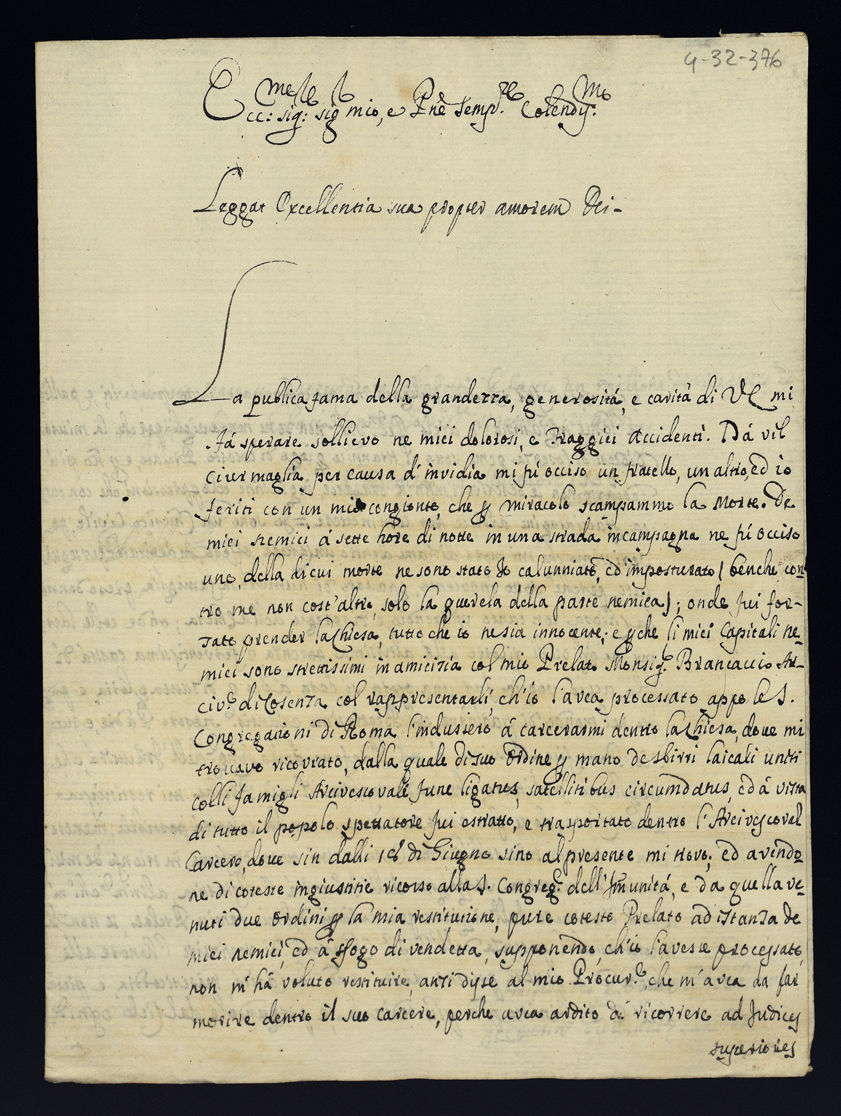 4-32-376
Ecc:me sig:re sig mio, e Pñe Semp.re Colendis:mo
Leggat Excellentia sua propter amorem Dei-
La publica fama della grandezza, generosità, e carità di VE mi
fà sperare sollievo ne miei dolorosi, e traggici accidenti. Dà vil
ciurmaglia per causa d'invidia mi fù occiso un fratello, un altro, ed io
feriti con un mio congionto, che p miracolo scampammo la Morte. De
miei nemici à sette hore di notte in una strada in campagna ne fù occiso
uno, della di cui morte ne sono stato Io calunniato, ed imposturato (benche con
tro me non cost'altro, solo la querela della parte nemica); onde fui for-
zato prender la Chiesa, tutto che io ne sia innocente: e p che li miei Capitali ne-
mici sono strettissimi in amicizia col mio Prelato Monsig.r Brancaccio Ar-
civ.o di Cosenza col rappresentarli, ch'io l'avea processato appo le S.
Congregationi di Roma l'indussero à carcerarmi dentro la Chiesa, dove mi
trovavo ricovrato, dalla quale di suo Ordine p mano de sbirri laicali uniti
colli famigli Arcivescovali fune ligatus, satellitibus circumdatus, ed à vista
di tutto il popolo spettatore fui estratto, e trasportato dentro l'Arcivescoval
Carcere, dove sin dalli 18 di Giugno sino al presente mi trovo; ed avendo-
ne di coteste ingiustitie ricorso alla S. Congreg.e dell'Immunità, e da quella ve-
nuti due ordini p la mia restitutione, pure cotesto Prelato ad istanza de
miei nemici, ed à sfogo di vendetta, supponendo, ch'io l'avesse processato,
non m'hà voluto restituire, anzi disse al mio Procur.re che m'avea da far
morire dentro il suo carcere, perche avea ardito di ricorrere ad Judices
superiores